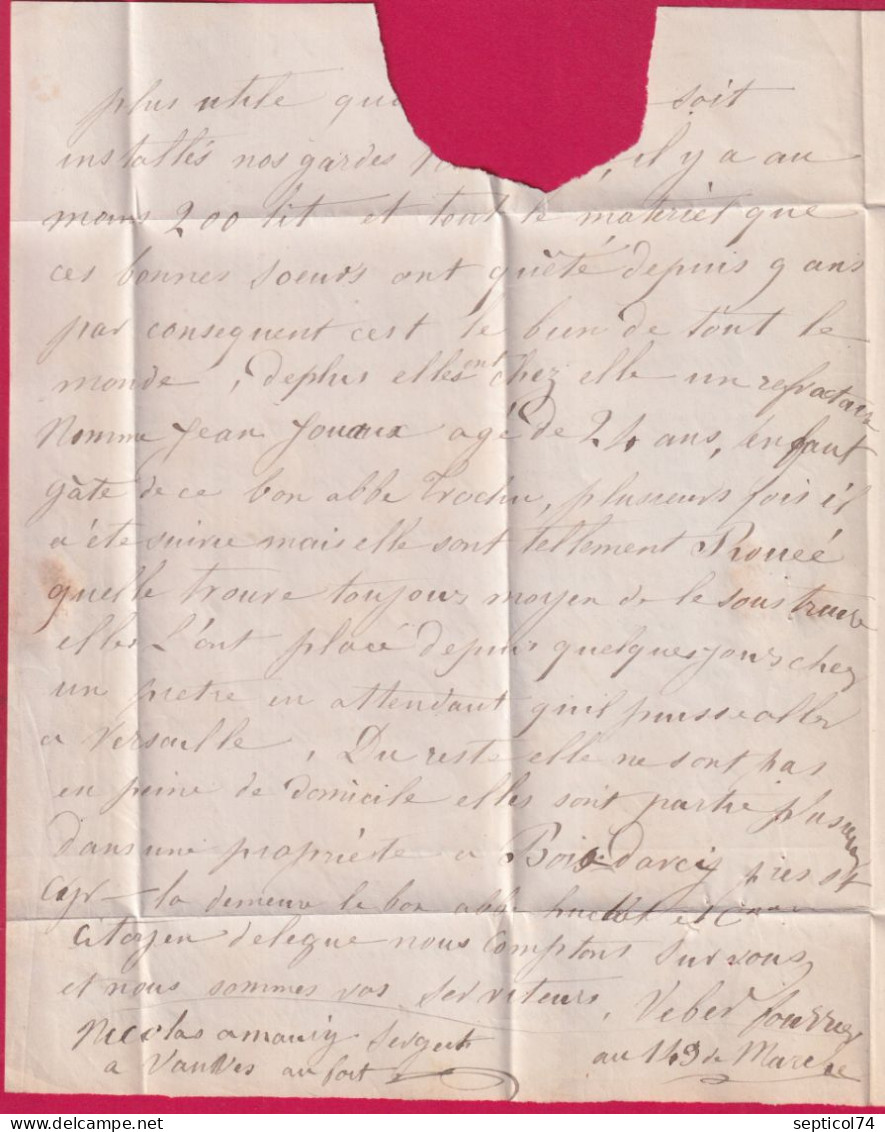 plus utile que soit
installés nos gardes il y a au
moins 200 lit et tout le matériel que
ces bonnes soeurs ont quêté depuis 9 ans
par consequent cest le bien de tout le
monde, deplus elles ont chez elle un refractaire
Nommé Jean Jouaux agé de 24 ans, Enfant
gâte de ce bon abbe Trochu, plusieurs fois il
a été suivie mais elle sont tellement Rouéé
quelle trouve toujours moyen de le soustraire
elles L'ont placé depuis quelques jours chez
un pretre en attendant quil puisse aller
a Versaille, Du reste elle ne sont pas
en peine de domicile elles sont partie plusieurs
Dans une propriéte a Bois Darcy près St
Cyr la demeure le bon abbe huchet et
Citoyen delegue nous Comptons Sur vous
et nous sommes vos Serviteurs, Veber fourrier
Nicolas amaury Sergent au 143 de Marche
a Vanves au fort
septicol74